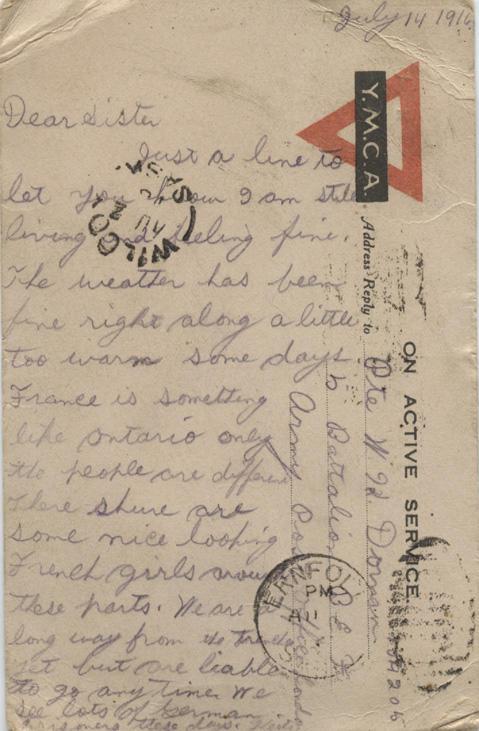 July 14 1916
Dear Sister
Just a line to
let you know I am still
living and feeling fine.
The weather has been
fine right along a little
too warm some days.
France is something
like Ontario only
the people are different
There shure are
some nice looking
French girls around
these parts. We are a
long way from the trenches
yet but are liable
to go any time. We
see lots of German
prisoners these days.
Y.M.C.A.
ON ACTIVE SERVICE
Address Reply to
Pte W
5 Battalion
Army Post Office London
WILCOX
SASK
AU
PM
AU